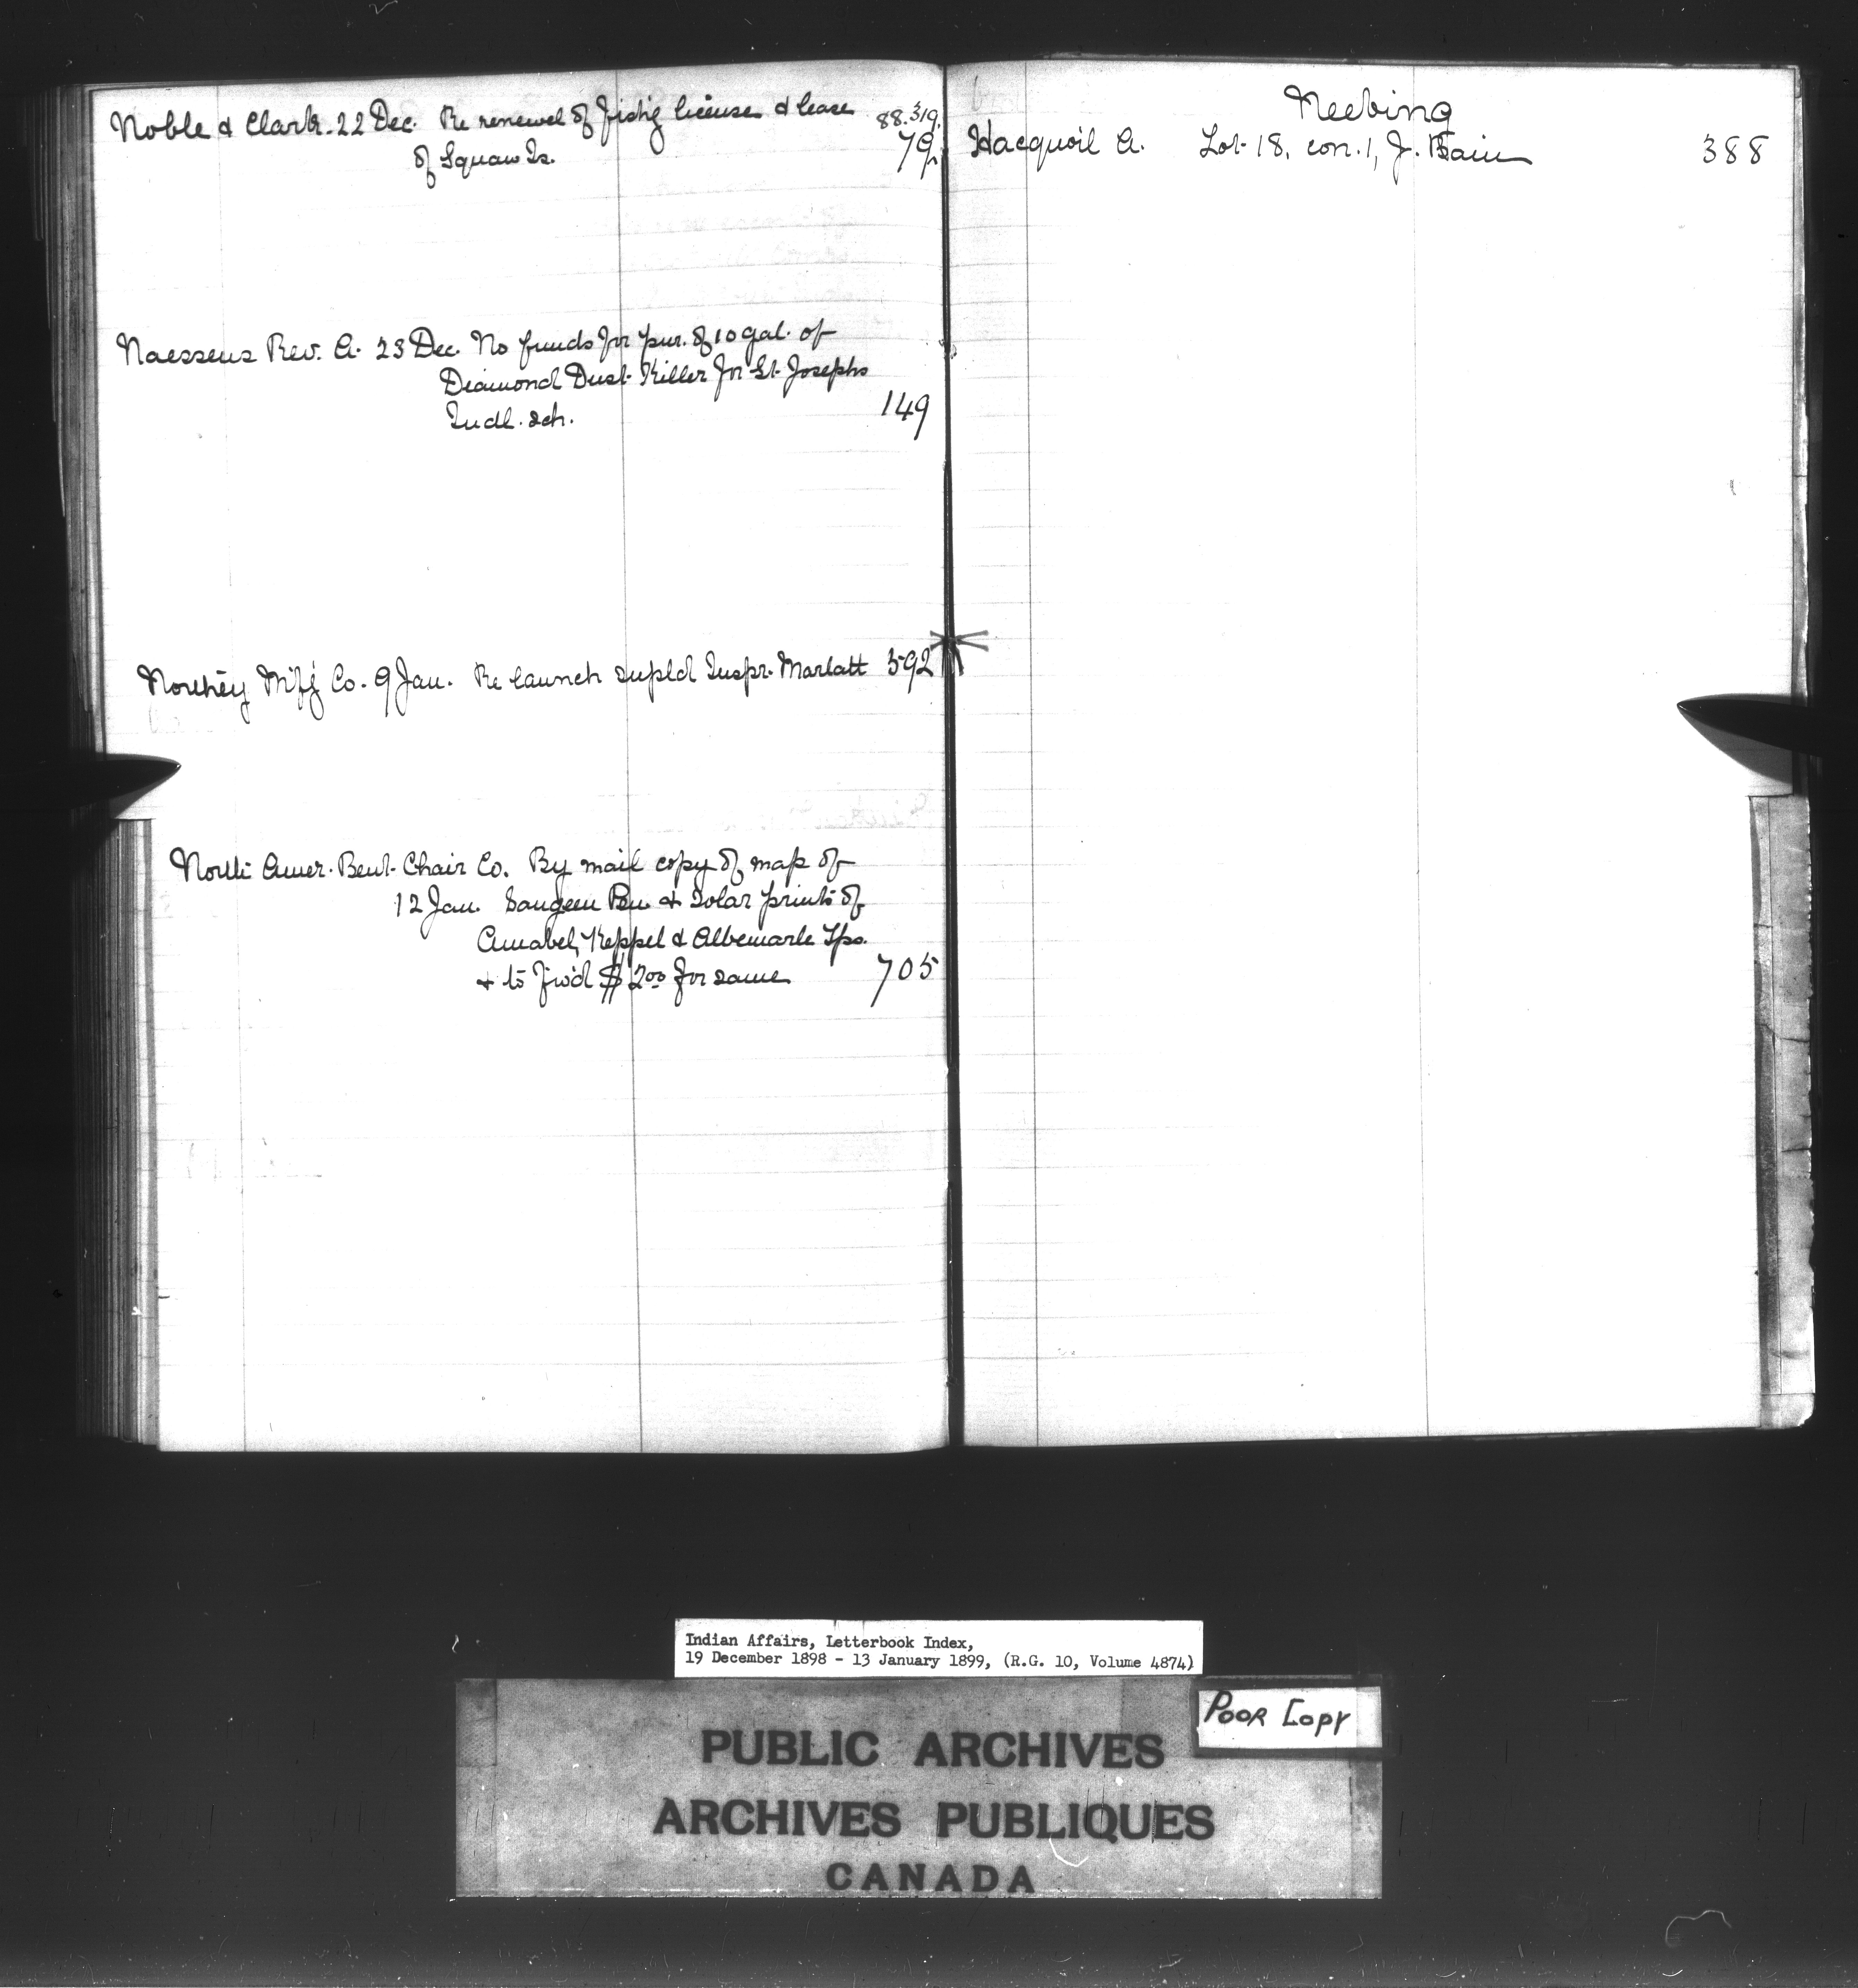 Noble & Clark. 22 Dec. Re renewel of fishg license & lease 88.319.
of Squaw Is. 79.
Naessens Rev. A. 23 Dec. No funds for pur. of 10 gal. of
Diamond Dust Killer for St. Josephs
Indl. sch. 149
Northey M'f'g Co. 9 Jan. Re launch supld Inspr. Marlatt 592
North Amer. Bent Chair Co. By mail copy of map of
12 Jan. Saugeen Pen. & Solar prints of
Amabel, Keppel & Albemarle Tps.
& to fw'd $2.00 for same 705
Neebing
Hacquoil A. Lot 18, con. 1, J. Bain 388
Indian Affairs, Letterbook Index,
19 December 1898 - 13 January 1899, (R.G. 10, Volume 4874)
POOR COPY
PUBLIC ARCHIVES
ARCHIVES PUBLIQUES
CANADA